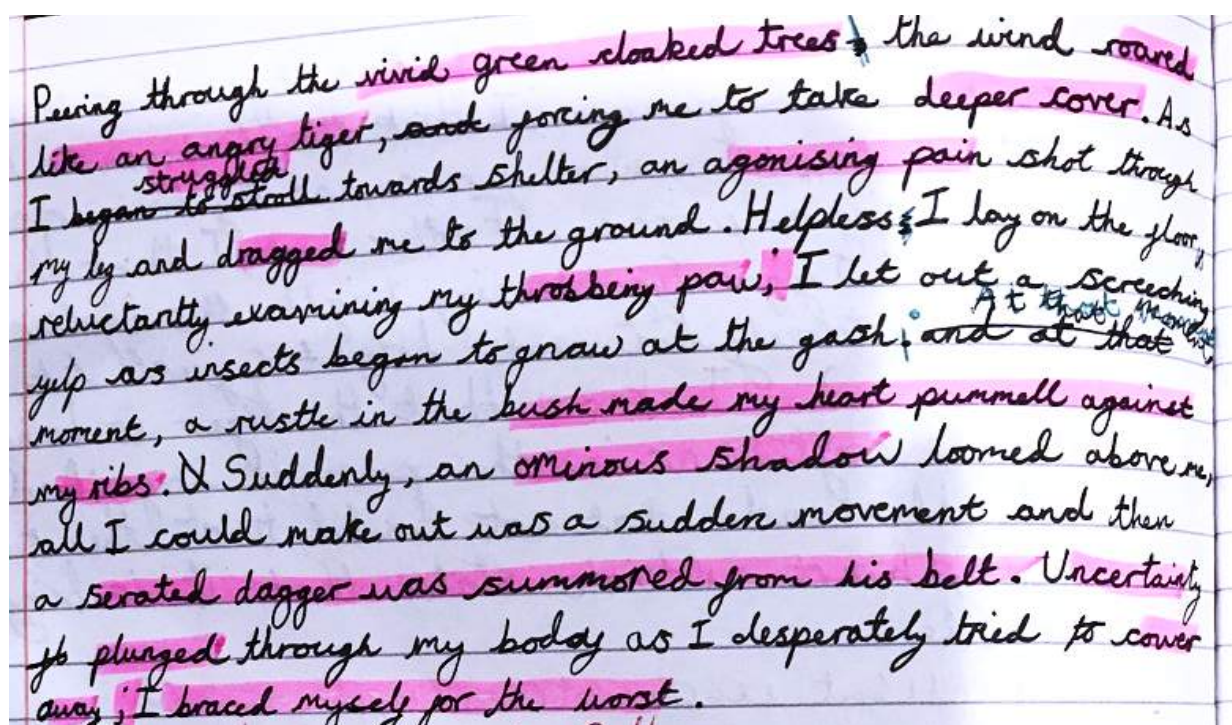 Peering through the vivid green cloaked trees, the wind roared
like an angry tiger, and forcing me to take deeper cover. As
struggled
I began to stroll towards shelter, an agonising pain shot through
my leg and dragged me to the ground. Helpless, I lay on the floor,
reluctantly examining my throbbing paw; I let out a screeching
At that moment,
yelp as insects began to gnaw at the gash. and at that
moment, a rustle in the bush made my heart pummell against
my ribs. Suddenly, an ominous shadow loomed above me,
all I could make out was a sudden movement and then
a serated dagger was summoned from his belt. Uncertainty
plunged through my body as I desperately tried to cower
away; I braced myself for the worst.